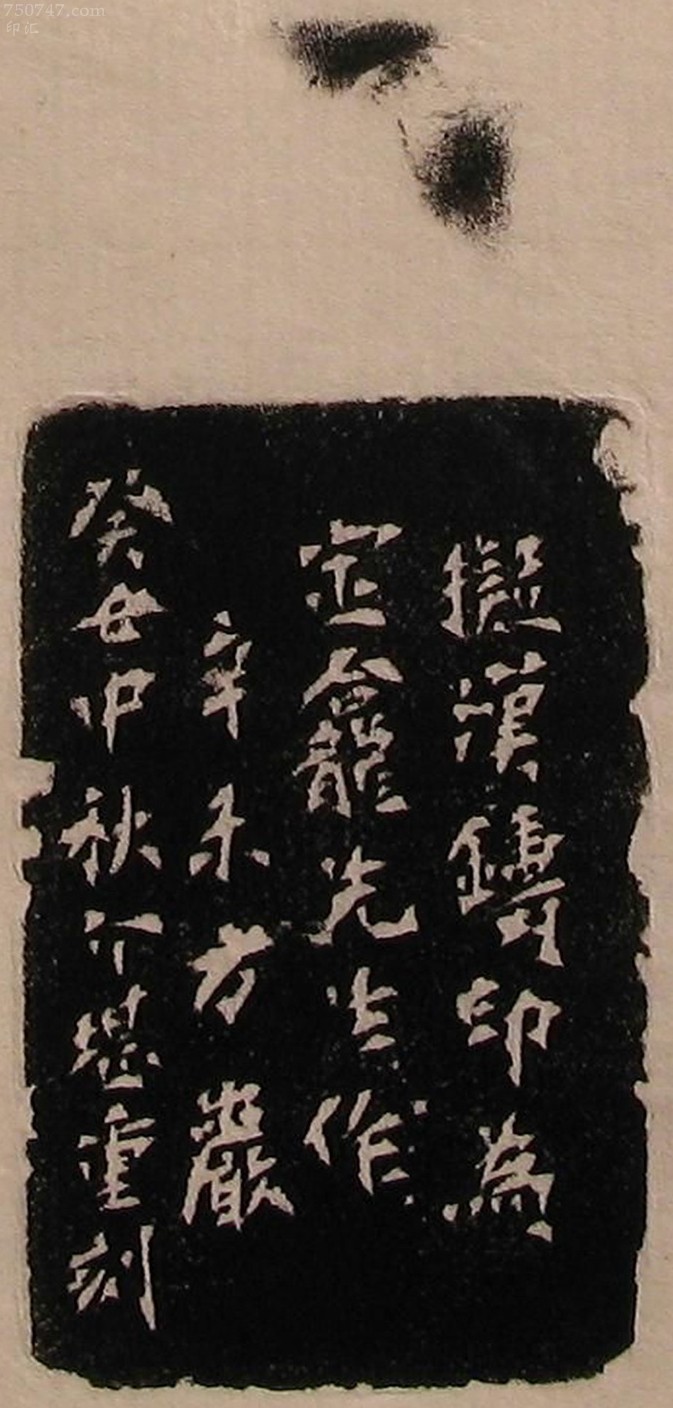 750747.com
印汇
擬漢鑄印為
定龕先生作
辛未方巖
癸丑中秋介堪重刻